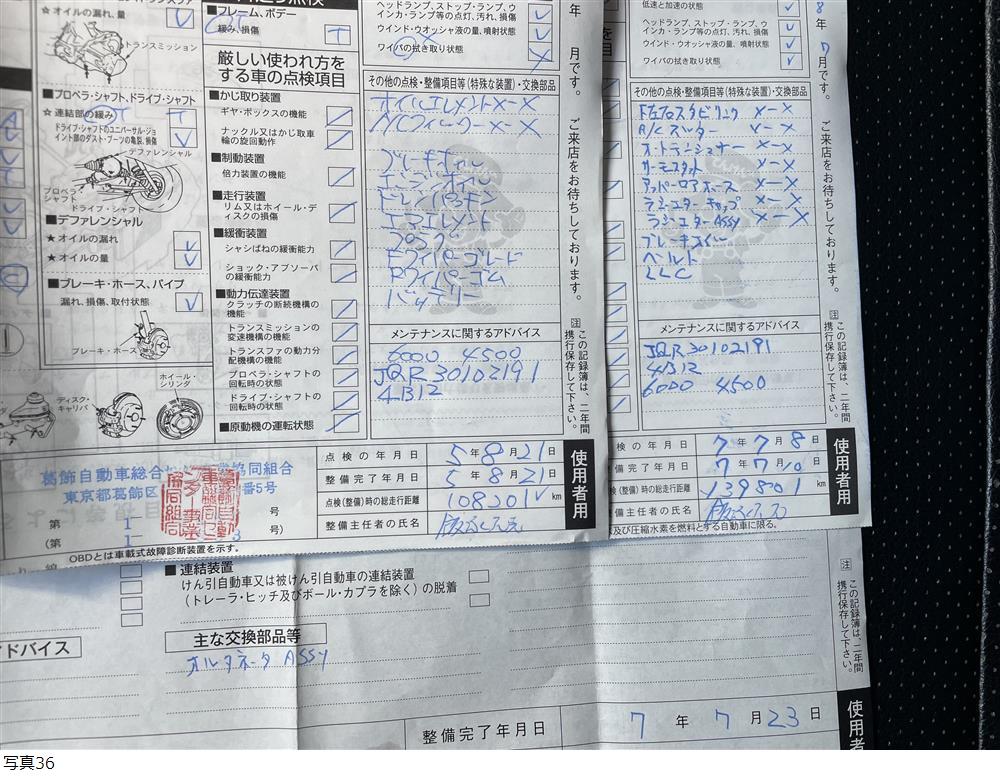 ★オイルの漏れ、量
トランスミッション
■プロペラ・シャフト、ドライブ・シャフト
☆連結部の緩み
T
ドライブ・シャフトのユニバーサル・ジョイント部のダスト・ブーツの亀裂、損傷
デファレンシャル
プロペラ・シャフト
ドライブ・シャフト
■デファレンシャル
★オイルの漏れ
★オイルの量
■ブレーキ・ホース、パイプ
漏れ、損傷、取付状態
ブレーキ・ホース
ホイール・シリンダ
ディスク・キャリパ
■フレーム、ボデー
緩み、損傷
T
厳しい使われ方を
する車の点検項目
■かじ取り装置
ギヤ・ボックスの機能
ナックル又はかじ取車輪の旋回動作
■制動装置
倍力装置の機能
■走行装置
リム又はホイール・ディスクの損傷
■緩衝装置
シャシばねの緩衝能力
ショック・アブソーバの緩衝能力
■動力伝達装置
クラッチの断続機構の機能
トランスミッションの変速機構の機能
トランスファの動力分配機構の機能
プロペラ・シャフトの回転時の状態
ドライブ・シャフトの回転時の状態
■原動機の運転状態
ヘッドランプ、ストップ・ランプ、ウインカ・ランプ等の点灯、汚れ、損傷
ウインド・ウオッシャ液の量、噴射状態
ワイパの拭き取り状態
その他の点検・整備項目等(特殊な装置)・交換部品
オイルエレメント X-X
A/Cフィルター X-X
ブレーキオイル
エンジンオイル
ドレンパッキン
エアエレメント
プラグ
Fワイパーブレード
Rワイパーゴム
バッテリー
メンテナンスに関するアドバイス
6000 4500
JQR30102191
4B12
点検の年月日 5年8月21日
整備完了年月日 5年8月21日
点検(整備)時の総走行距離 108201 km
整備主任者の氏名
使用者用
年 月です。 ご来店をお待ちしております。
注 この記録簿は、二年間携行保存して下さい。
葛飾自動車総合
協同組合
東京都葛飾区
番5号
第 1 号
(第 1 号)
OBDとは車載式故障診断装置を示す。
低速と加速の状態
ヘッドランプ、ストップ・ランプ、ウインカ・ランプ等の点灯、汚れ、損傷
ウインド・ウオッシャ液の量、噴射状態
ワイパの拭き取り状態
その他の点検・整備項目等(特殊な装置)・交換部品
F左右スタビリンク X-X
A/Cスター X-X
オートテンショナー X-X
サーモスタット X-X
アッパーロアホース X-X
ラジエターキャップ X-X
ラジエターASSY X-X
ブレーキオイル
ベルト
LLC
メンテナンスに関するアドバイス
JQR30102191
4B12
6000 4500
点検の年月日 7年7月8日
整備完了年月日 7年7月10日
点検(整備)時の総走行距離 139801 km
整備主任者の氏名
及び圧縮水素を燃料とする自動車に限る。
使用者用
8年7月です。 ご来店をお待ちしております。
注 この記録簿は、二年間携行保存して下さい。
■連結装置
けん引自動車又は被けん引自動車の連結装置
(トレーラ・ヒッチ及びボール・カプラを除く)の脱着
ドバイス
主な交換部品等
オルタネータ ASSY
整備完了年月日 7年7月23日
注 この記録簿は、二年間携行保存して下さい。
使用者
写真36